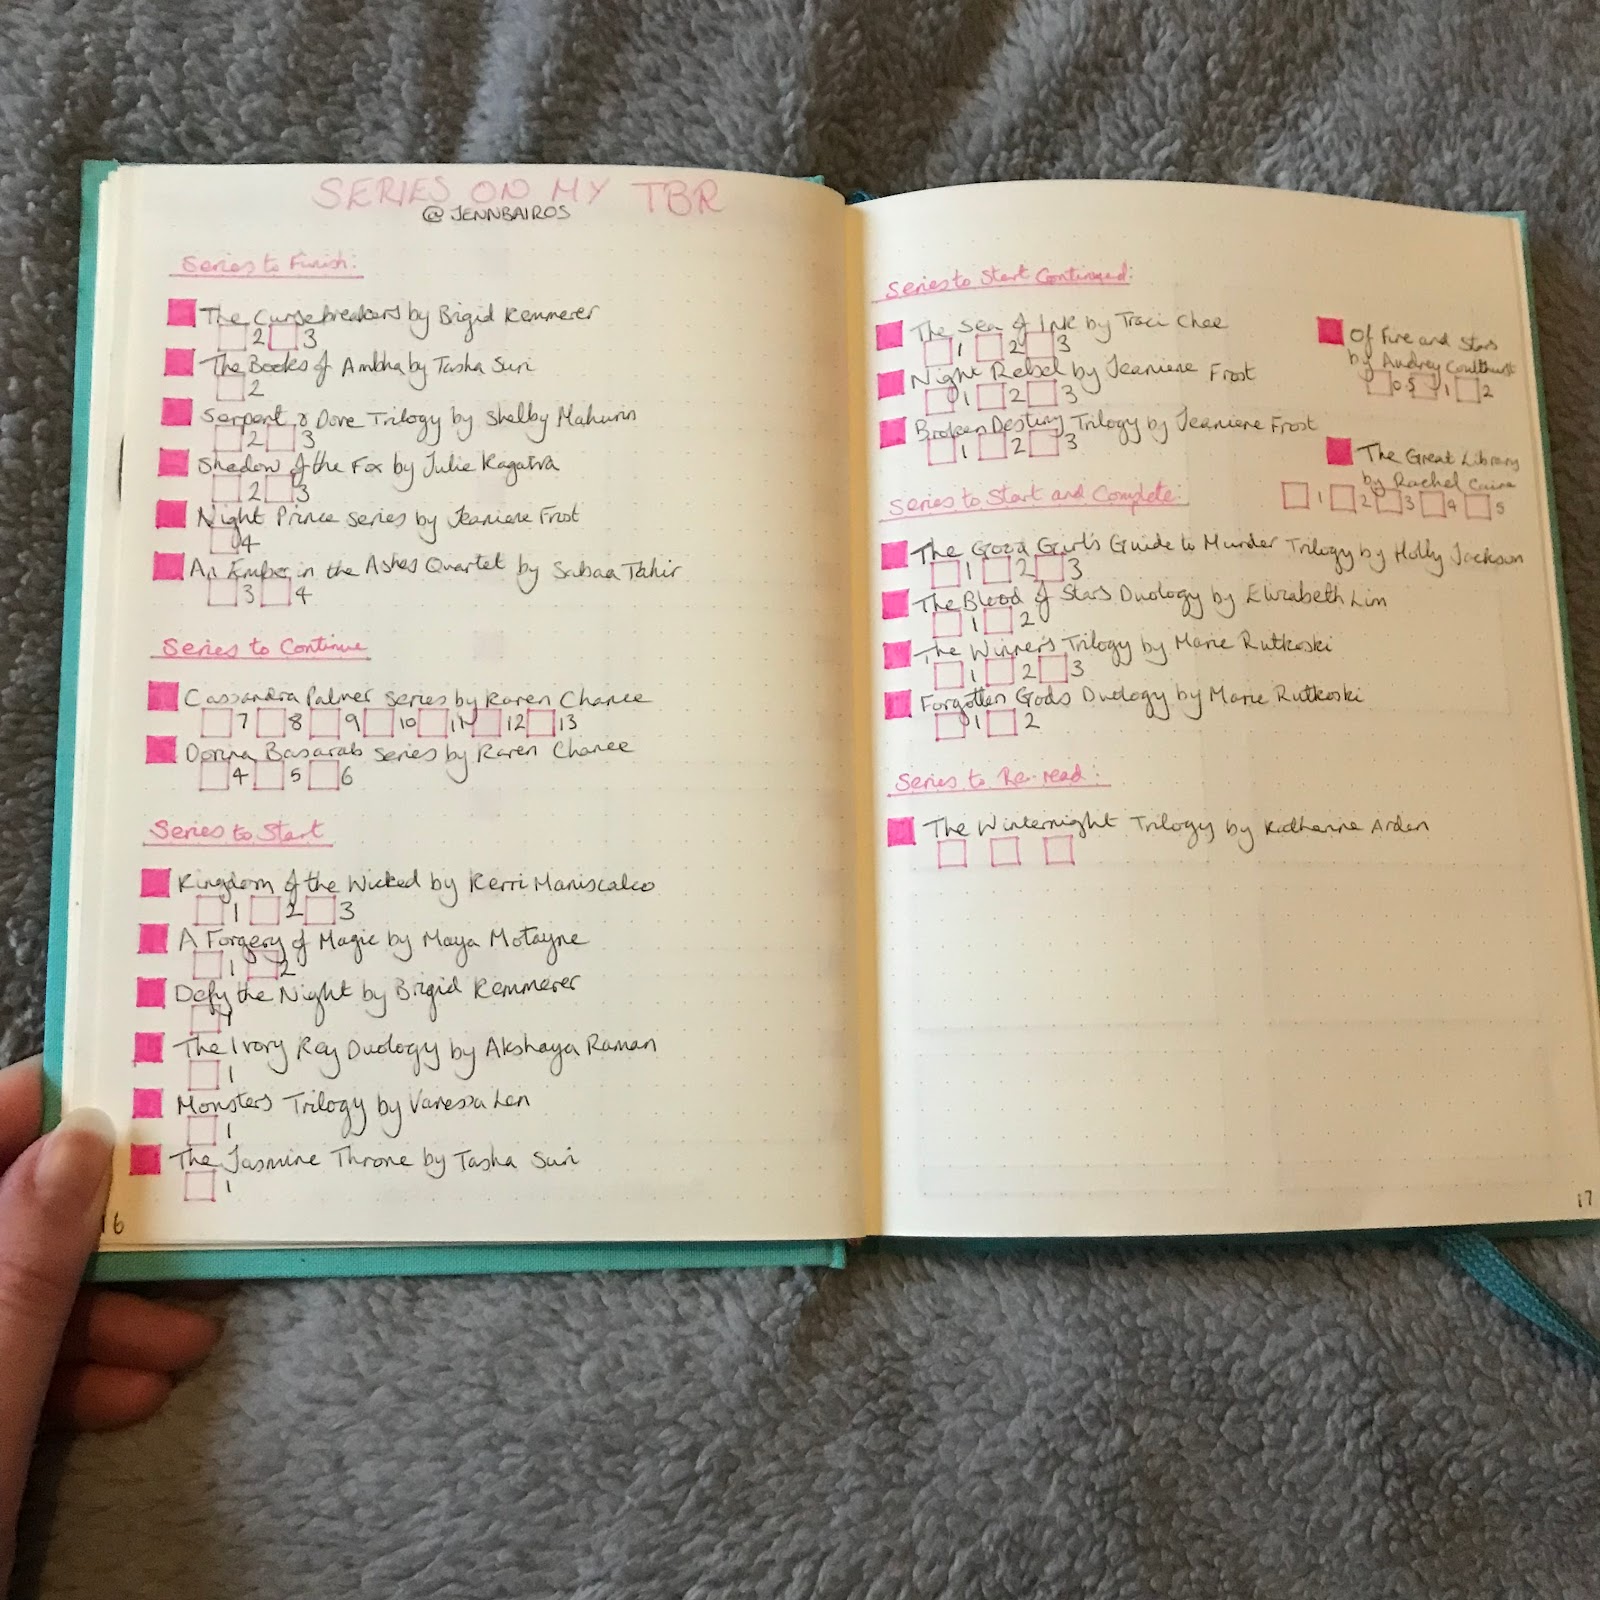 SERIES ON MY TBR
@JENNBAIROS
Series to Finish:
The Cursebreakers by Brigid Kemmerer
2 3
The Books of Ambha by Tasha Suri
2
Serpent & Dove Trilogy by Shelby Mahurin
2 3
Shadow of the Fox by Julie Kagawa
2 3
Night Prince Series by Jeaniene Frost
4
An Ember in the Ashes Quartet by Sabaa Tahir
3 4
Series to Continue
Cassandra Palmer Series by Karen Chance
7 8 9 10 11 12 13
Dorina Basarab Series by Karen Chance
4 5 6
Series to Start
Kingdom of the Wicked by Kerri Maniscalco
1 2 3
A Forgery of Magic by Maya Motayne
1 2
Defy the Night by Brigid Kemmerer
1
The Ivory Key Duology by Akshaya Raman
1
Monsters Trilogy by Vanessa Len
1
The Jasmine Throne by Tasha Suri
1
16
Series to Start Continued:
The Sea of Ink by Traci Chee
1 2 3
Night Rebel by Jeaniene Frost
1 2 3
Broken Destiny Trilogy by Jeaniene Frost
1 2 3
Of Fire and Stars
by Audrey Coulthurst
0.5 1 2
The Great Library
by Rachel Caine
1 2 3 4 5
Series to Start and Complete:
The Good Girl's Guide to Murder Trilogy by Holly Jackson
1 2 3
The Blood of Stars Duology by Elizabeth Lim
1 2
The Winner's Trilogy by Marie Rutkoski
1 2 3
Forgotten Gods Duology by Marie Rutkoski
1 2
Series to Re-read:
The Winternight Trilogy by Katherine Arden
17